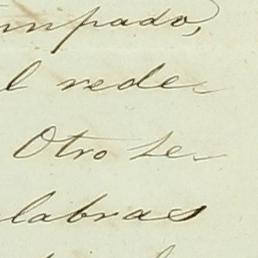 mpado,
l rede-
Otro Se-
labras